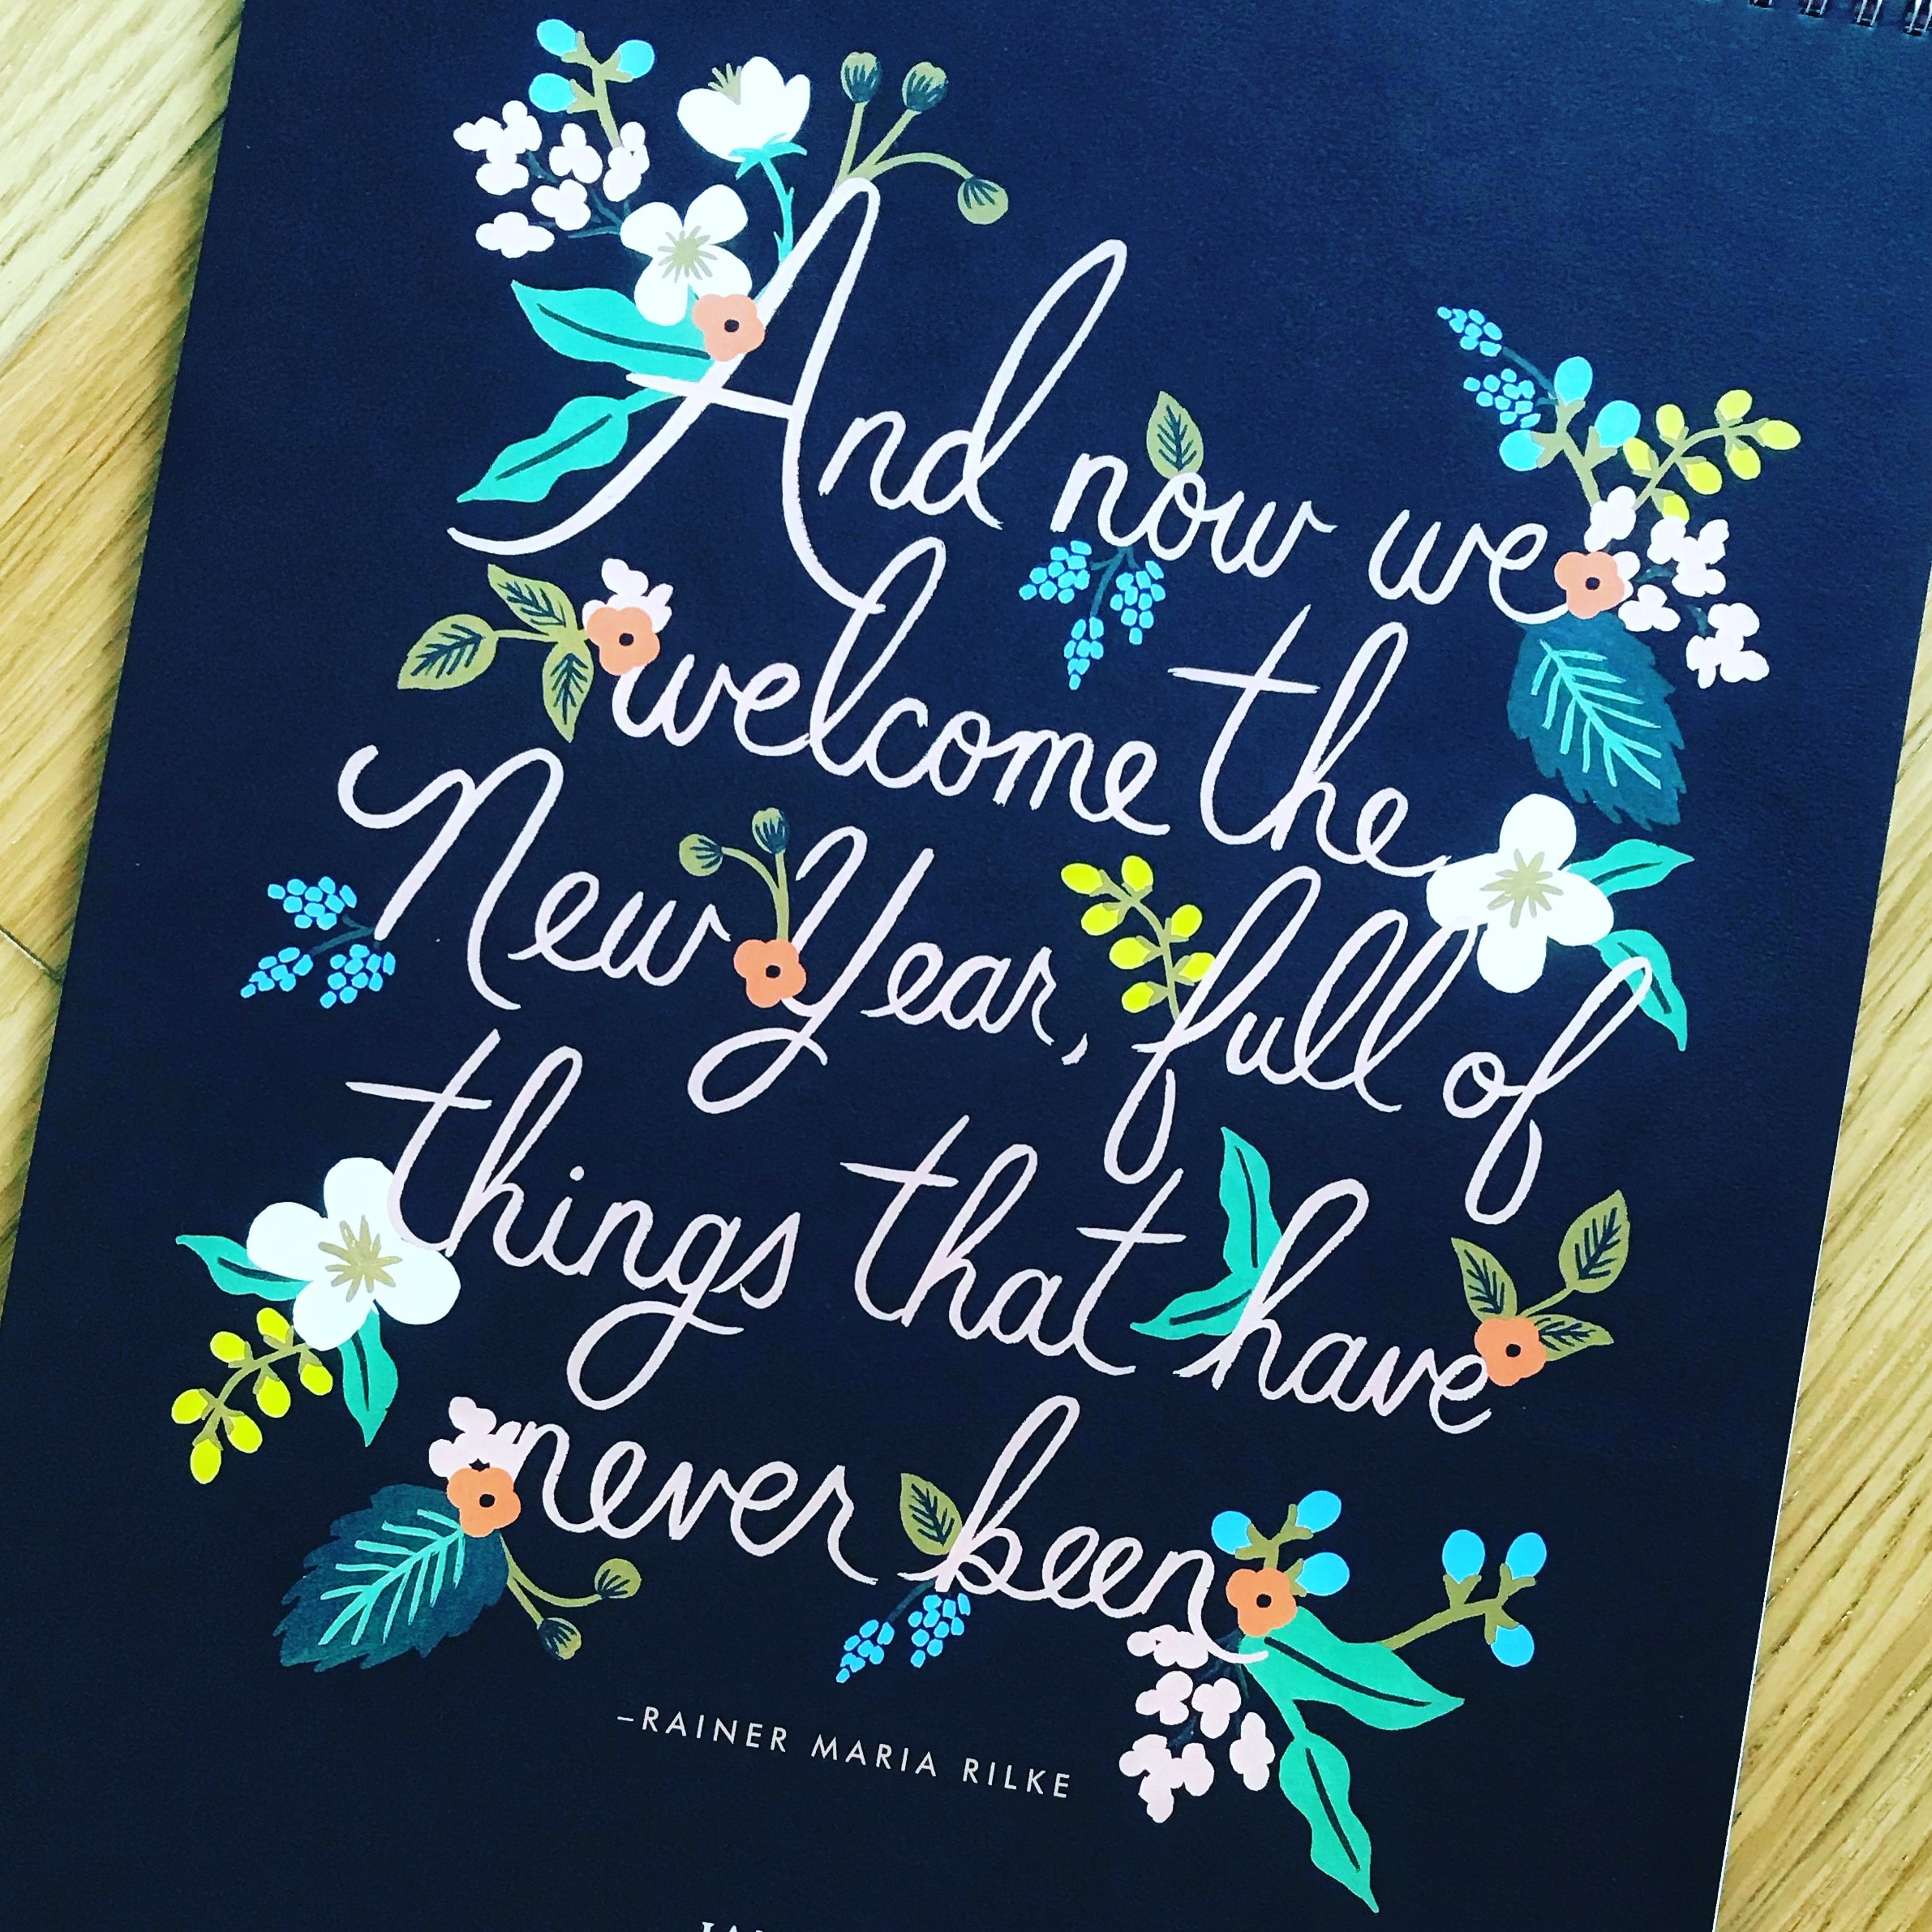 And now we
welcome the
New Year, full of
things that have
never been
–RAINER MARIA RILKE